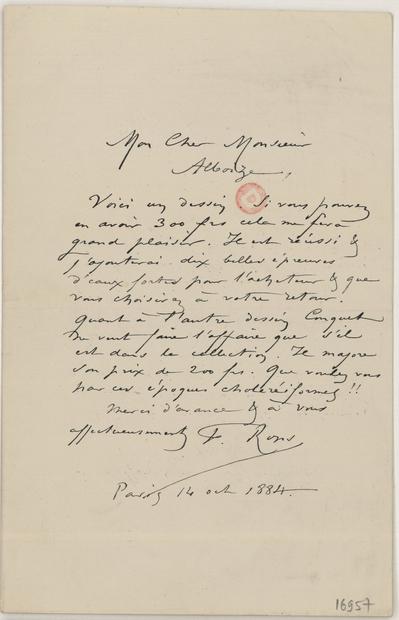 Mon Cher Monsieur
Albouze,
Voici un dessin. Si vous pouvez
en avoir 300 frs cela me fera
grand plaisir. Il est réussi &
j'ajouterai dix belles épreuves
d'eaux fortes pour l'acheteur & que
vous choisirez à votre retour.
Quant à l'autre dessin Conquet
ne veut faire l'affaire que s'il
est dans la collection. Je majore
son prix de 200 frs. Que voulez vous
par ces époques choleriformes !!
Merci d'avance & à vous
affectueusement F. Rops
Paris 14 oct 1884.
16957